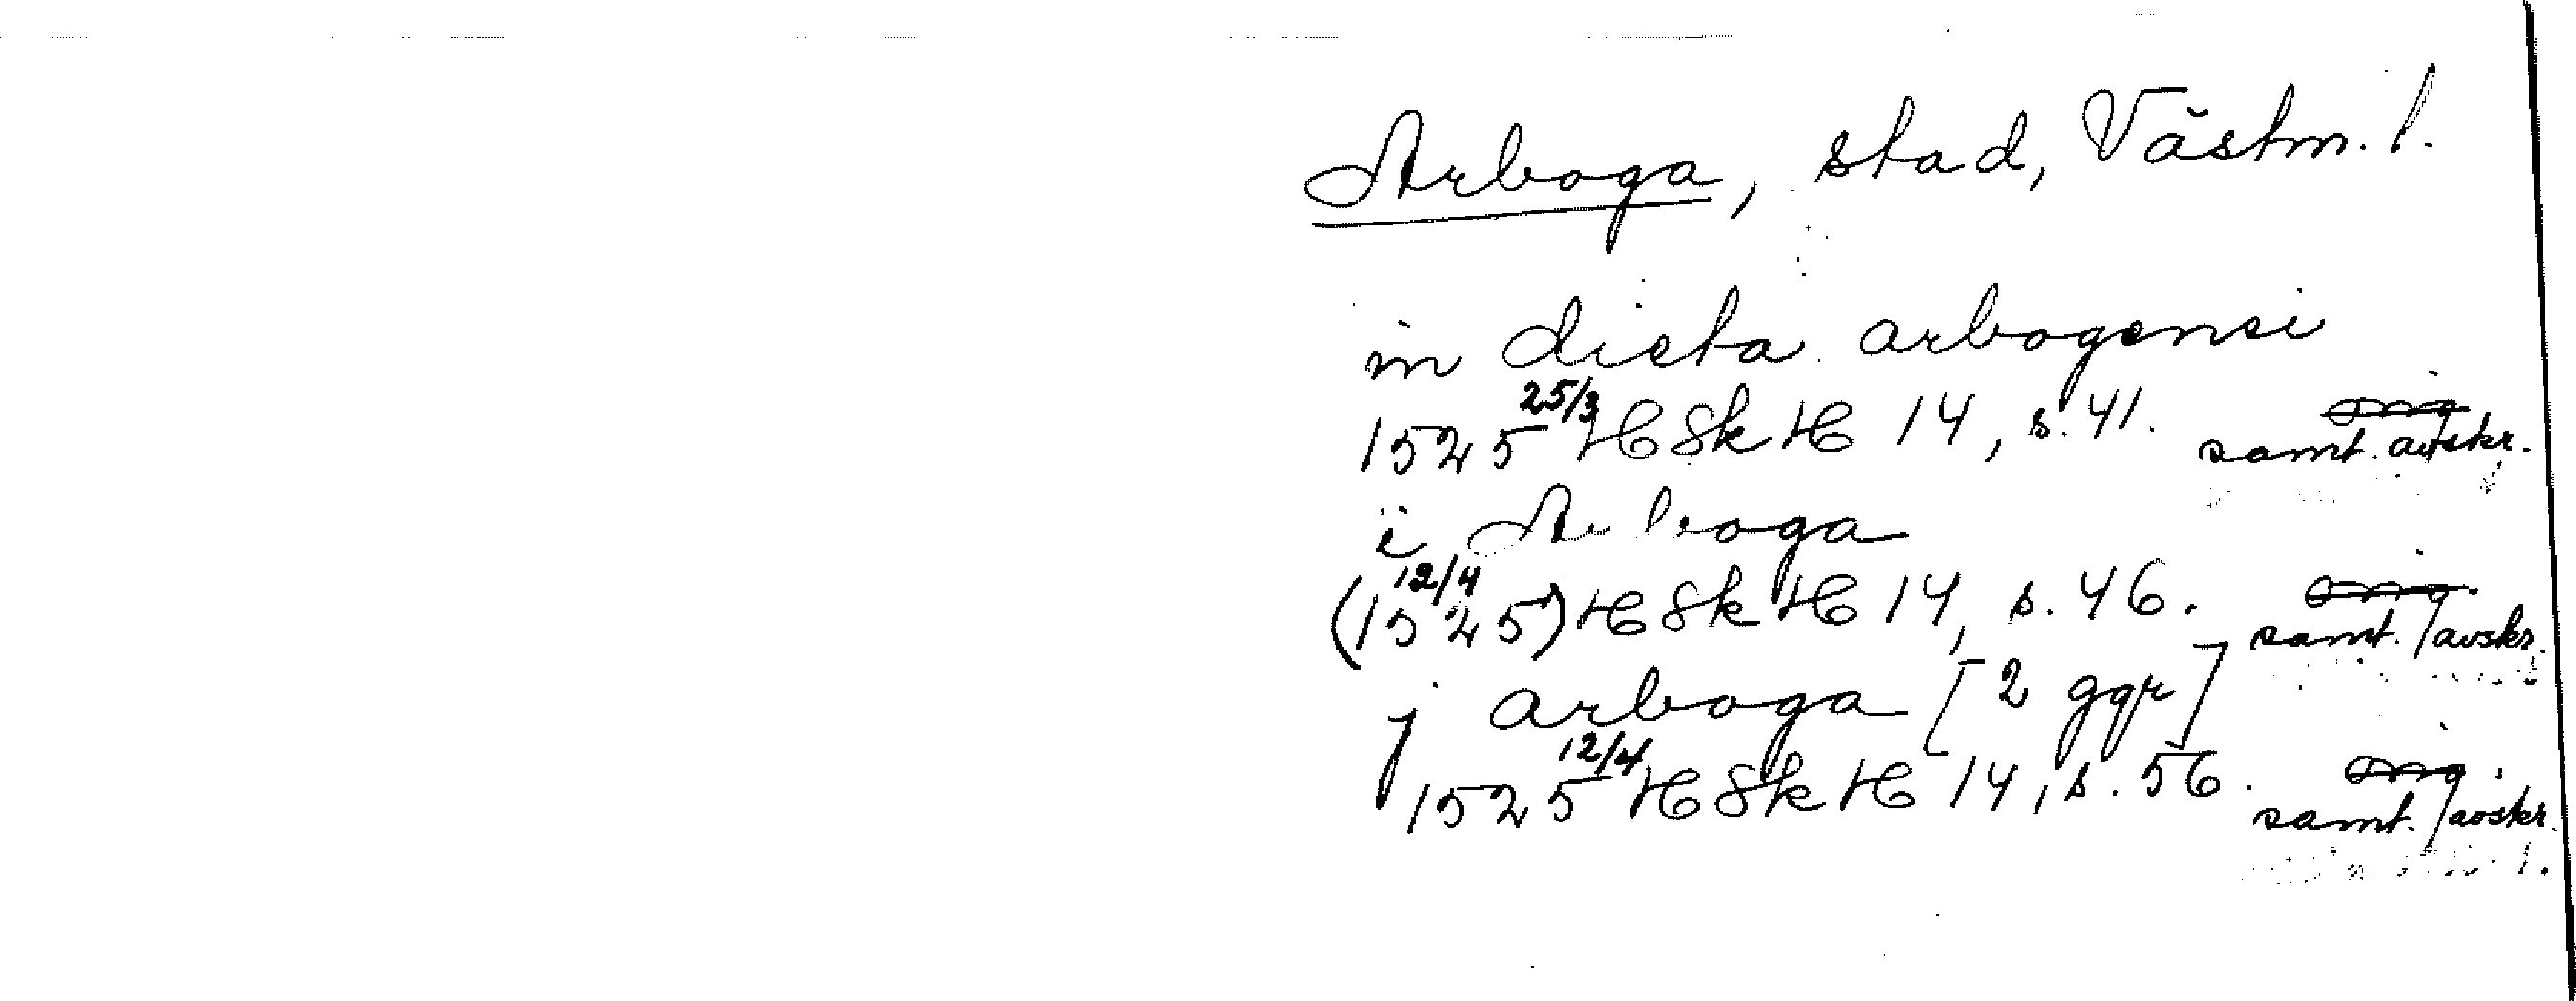 Arboga, stad, Västm. l.
in dieta arbogensi
1525 25/3 HSkH 14, s. 41. orig. samt. avskr.
i Arboga
(1525) 12/4 HSkH 14, s. 46. orig. samt. avskr.
j arboga [2 ggr]
1525 12/4 HSkH 14, s. 56. orig. samt. avskr.